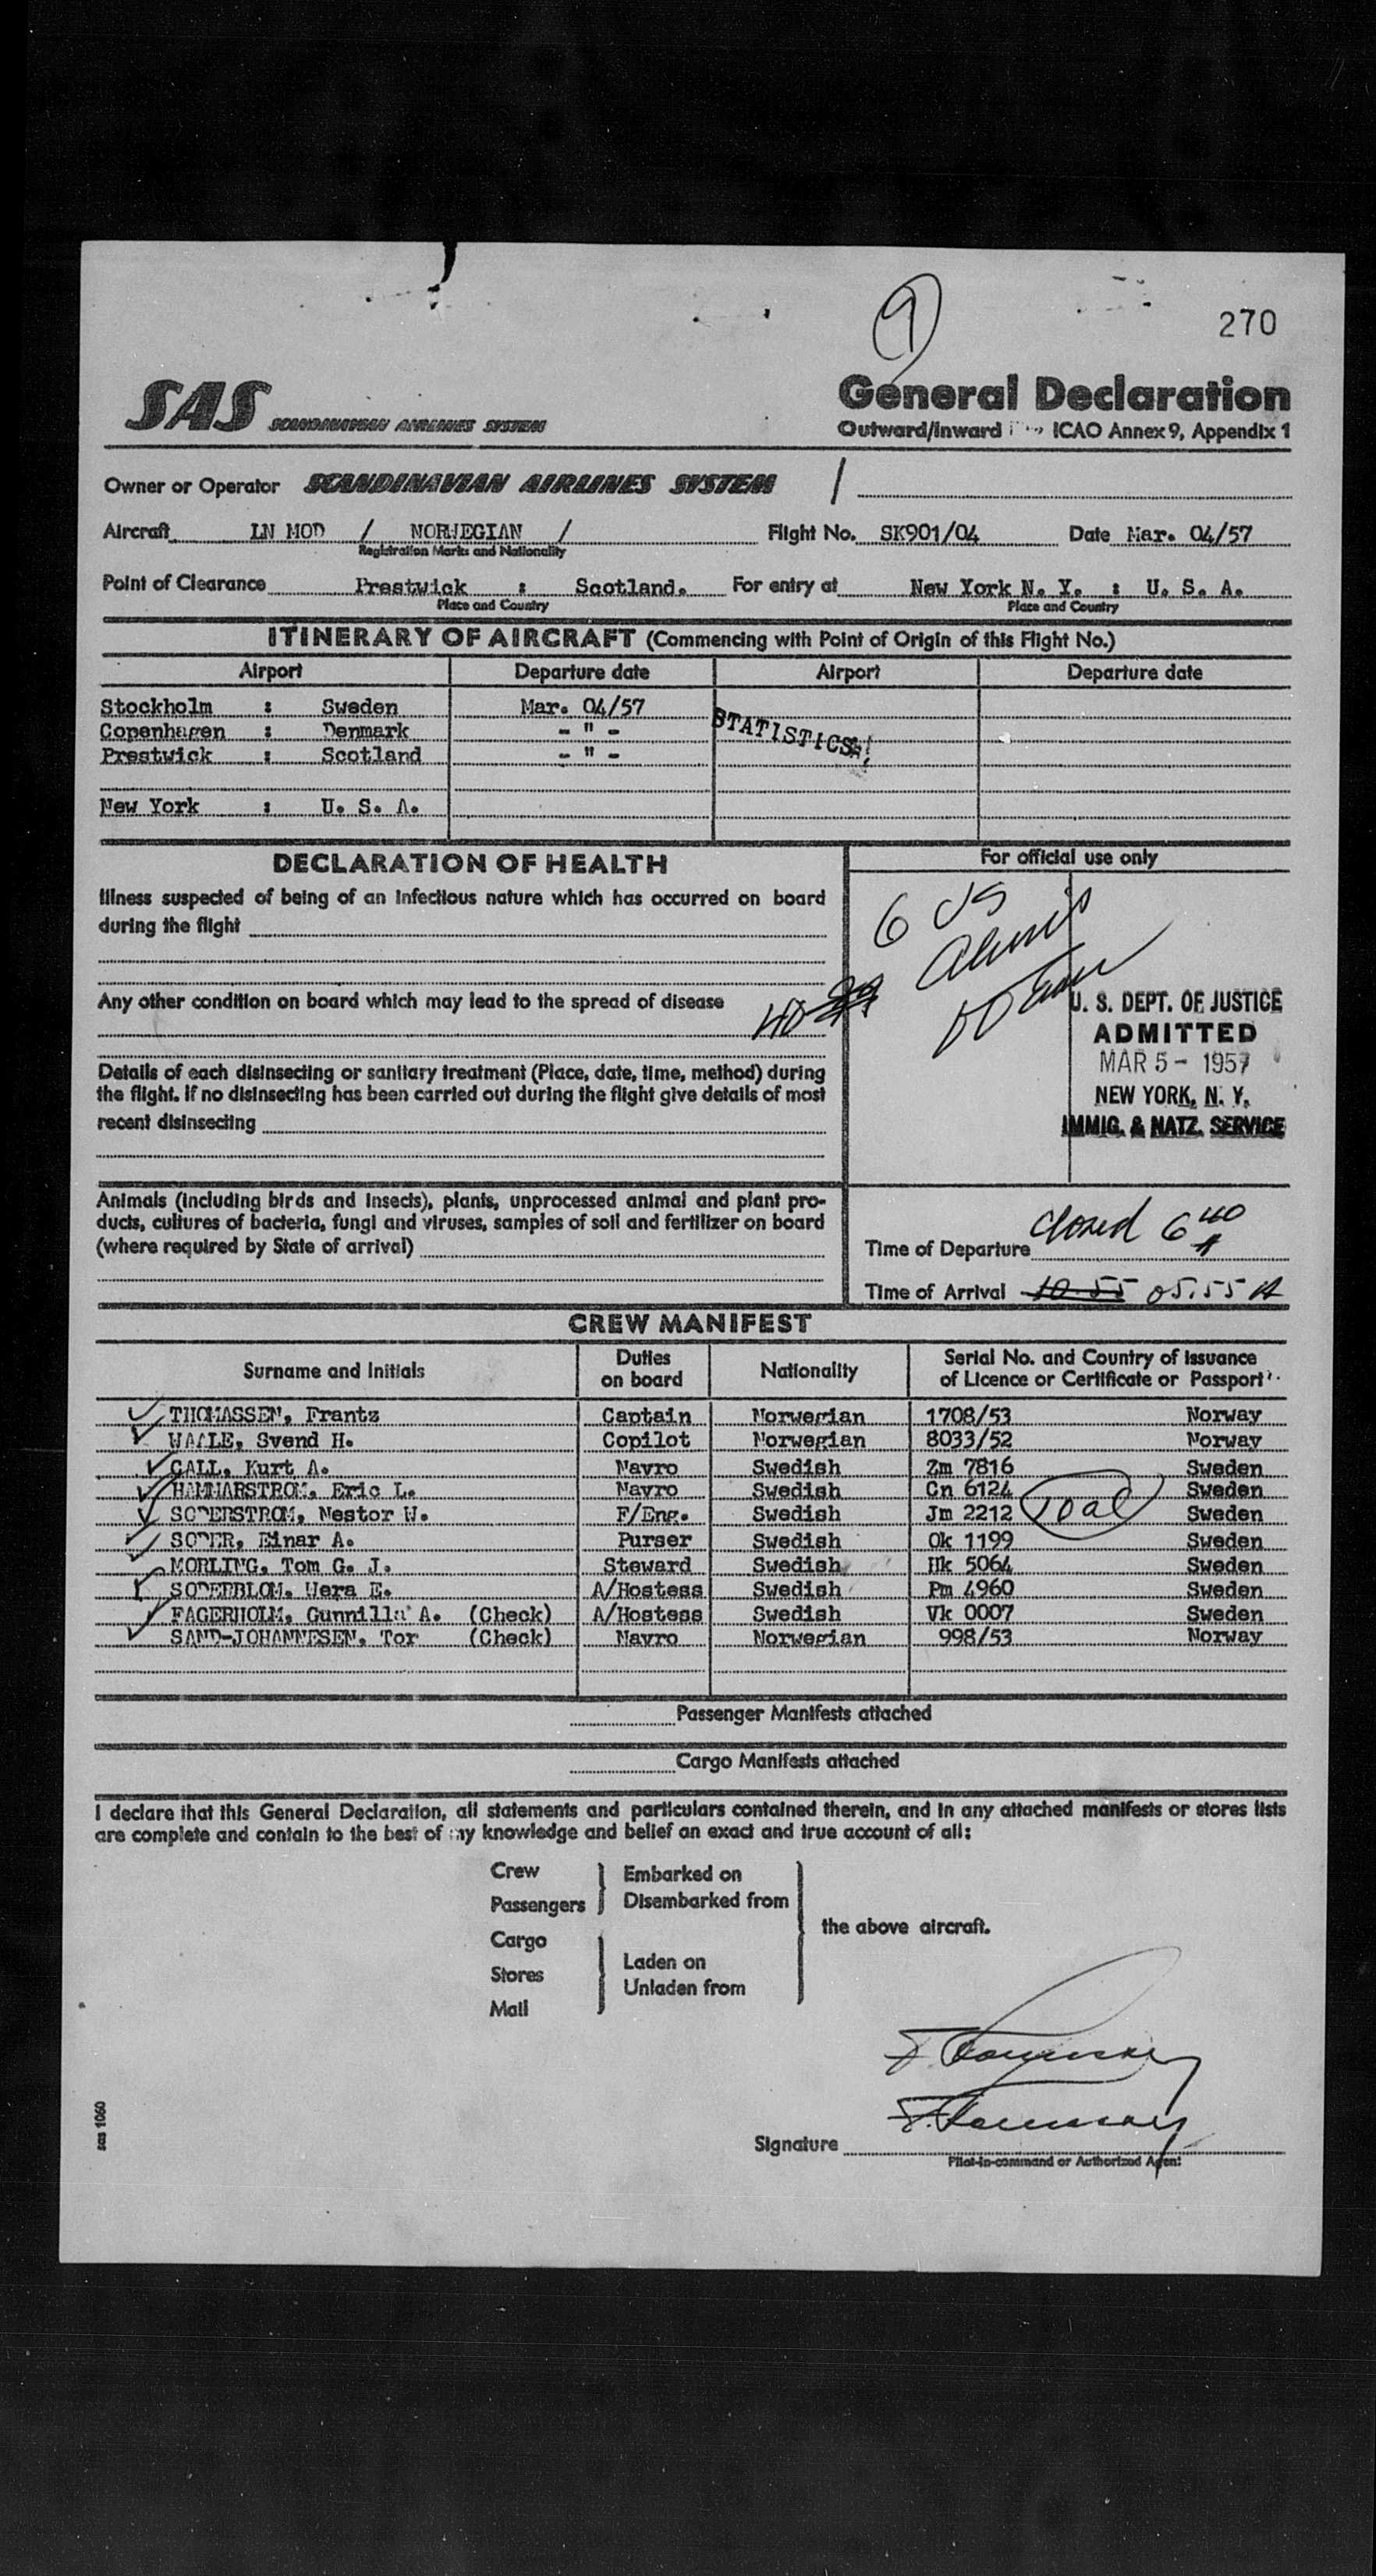 270
SAS SCANDINAVIAN AIRLINES SYSTEM
General Declaration
Outward/Inward ICAO Annex 9, Appendix 1
Owner or Operator SCANDINAVIAN AIRLINES SYSTEM /
Aircraft LN MOD / NORWEGIAN / Flight No. SK901/04 Date Mar. 04/57
Registration Marks and Nationality
Point of Clearance Prestwick : Scotland. For entry at New York N. Y. : U. S. A.
Place and Country Place and Country
ITINERARY OF AIRCRAFT (Commencing with Point of Origin of this Flight No.)
Airport Departure date Airport Departure date
Stockholm : Sweden Mar. 04/57
Copenhagen : Denmark - " -
Prestwick : Scotland - " -
STATISTICS
New York : U. S. A.
DECLARATION OF HEALTH
Illness suspected of being of an infectious nature which has occurred on board
during the flight
Any other condition on board which may lead to the spread of disease
Details of each disinsecting or sanitary treatment (Place, date, time, method) during
the flight. If no disinsecting has been carried out during the flight give details of most
recent disinsecting
Animals (including birds and insects), plants, unprocessed animal and plant pro-
ducts, cultures of bacteria, fungi and viruses, samples of soil and fertilizer on board
(where required by State of arrival)
For official use only
6 US
40
U. S. DEPT. OF JUSTICE
ADMITTED
MAR 5 - 1957
NEW YORK, N. Y.
IMMIG. & NATZ. SERVICE
Time of Departure closed 6 40 A
Time of Arrival 10.55 05.55 A
CREW MANIFEST
Surname and Initials Duties on board Nationality Serial No. and Country of Issuance of Licence or Certificate or Passport
THOMASSEN, Frantz Captain Norwegian 1708/53 Norway
WAALE, Svend H. Copilot Norwegian 8033/52 Norway
CALL, Kurt A. Navro Swedish Zm 7816 Sweden
HAMMARSTROM, Eric L. Navro Swedish Cn 6124 Sweden
SODERSTROM, Nestor W. F/Eng. Swedish Jm 2212 Sweden
SODER, Einar A. Purser Swedish Ok 1199 Sweden
MORLING, Tom G. J. Steward Swedish Hk 5064 Sweden
SODERBLOM, Wera E. A/Hostess Swedish Pm 4960 Sweden
FAGERHOLM, Gunnilla A. (Check) A/Hostess Swedish Vk 0007 Sweden
SAND-JOHANNESEN, Tor (Check) Navro Norwegian 998/53 Norway
Passenger Manifests attached
Cargo Manifests attached
I declare that this General Declaration, all statements and particulars contained therein, and in any attached manifests or stores lists
are complete and contain to the best of my knowledge and belief an exact and true account of all:
Crew
Passengers
Embarked on
Disembarked from
Cargo
Stores
Mail
Laden on
Unladen from
the above aircraft.
Signature
Pilot-in-command or Authorized Agent
sas 1060